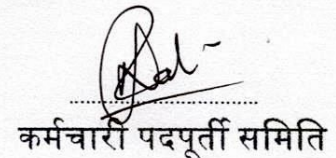 कर्मचारी पदपूर्ती समिति